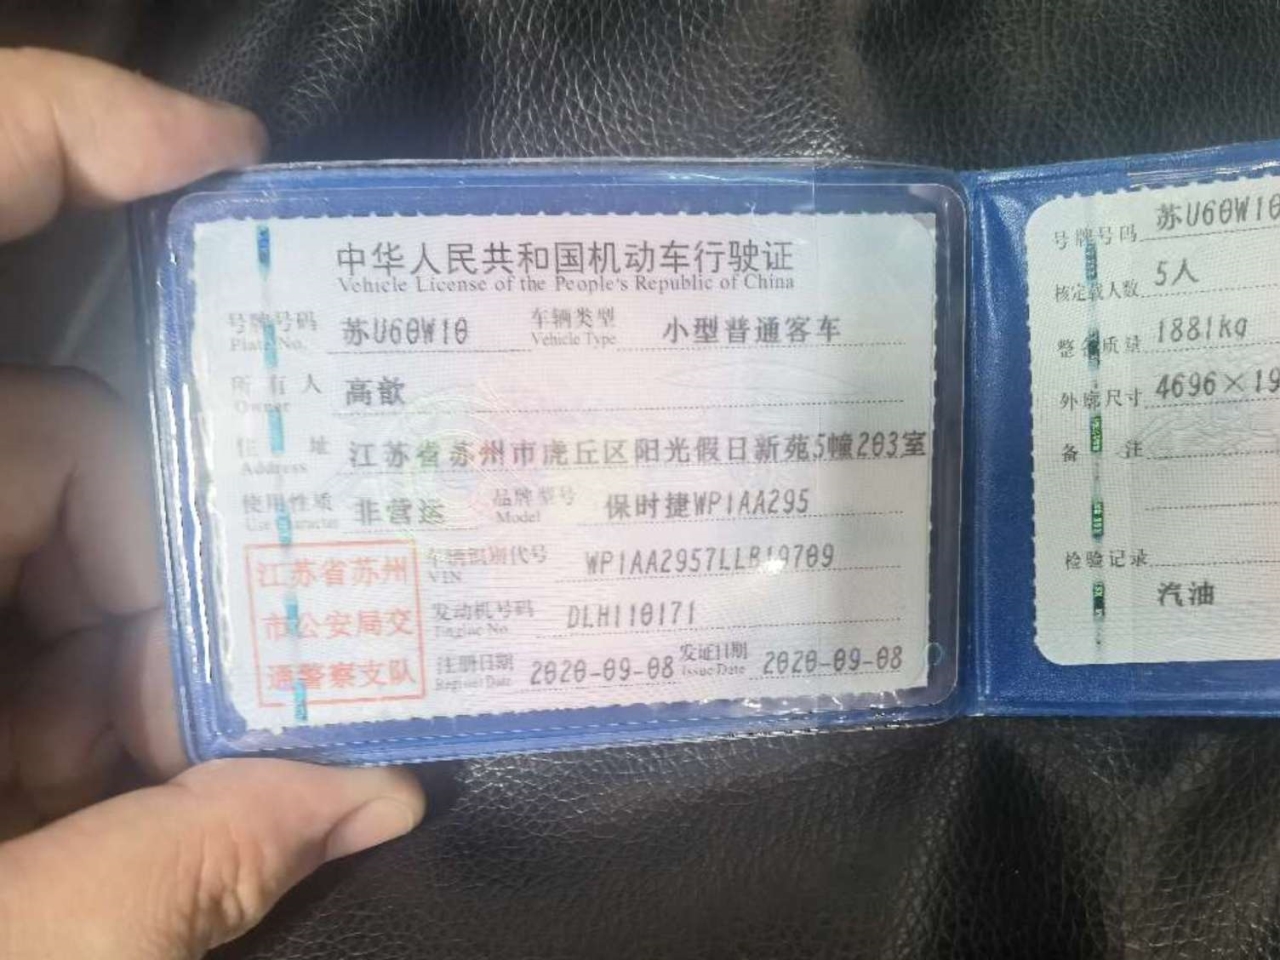 中华人民共和国机动车行驶证
Vehicle License of the People's Republic of China
号牌号码 苏U60W10 车辆类型 小型普通客车
Plate No. Vehicle Type
所有人 高歆
Owner
住址 江苏省苏州市虎丘区阳光假日新苑5幢203室
Address
使用性质 非营运 品牌型号 保时捷WP1AA295
Use Character Model
车辆识别代号 WP1AA2957LLB19709
VIN
发动机号码 DLH110171
Engine No.
注册日期 2020-09-08 发证日期 2020-09-08
Register Date Issue Date
江苏省苏州
市公安局交
通警察支队
号牌号码 苏U60W10
核定载人数 5人
整备质量 1881kg
外廓尺寸 4696×19
备注
检验记录
汽油